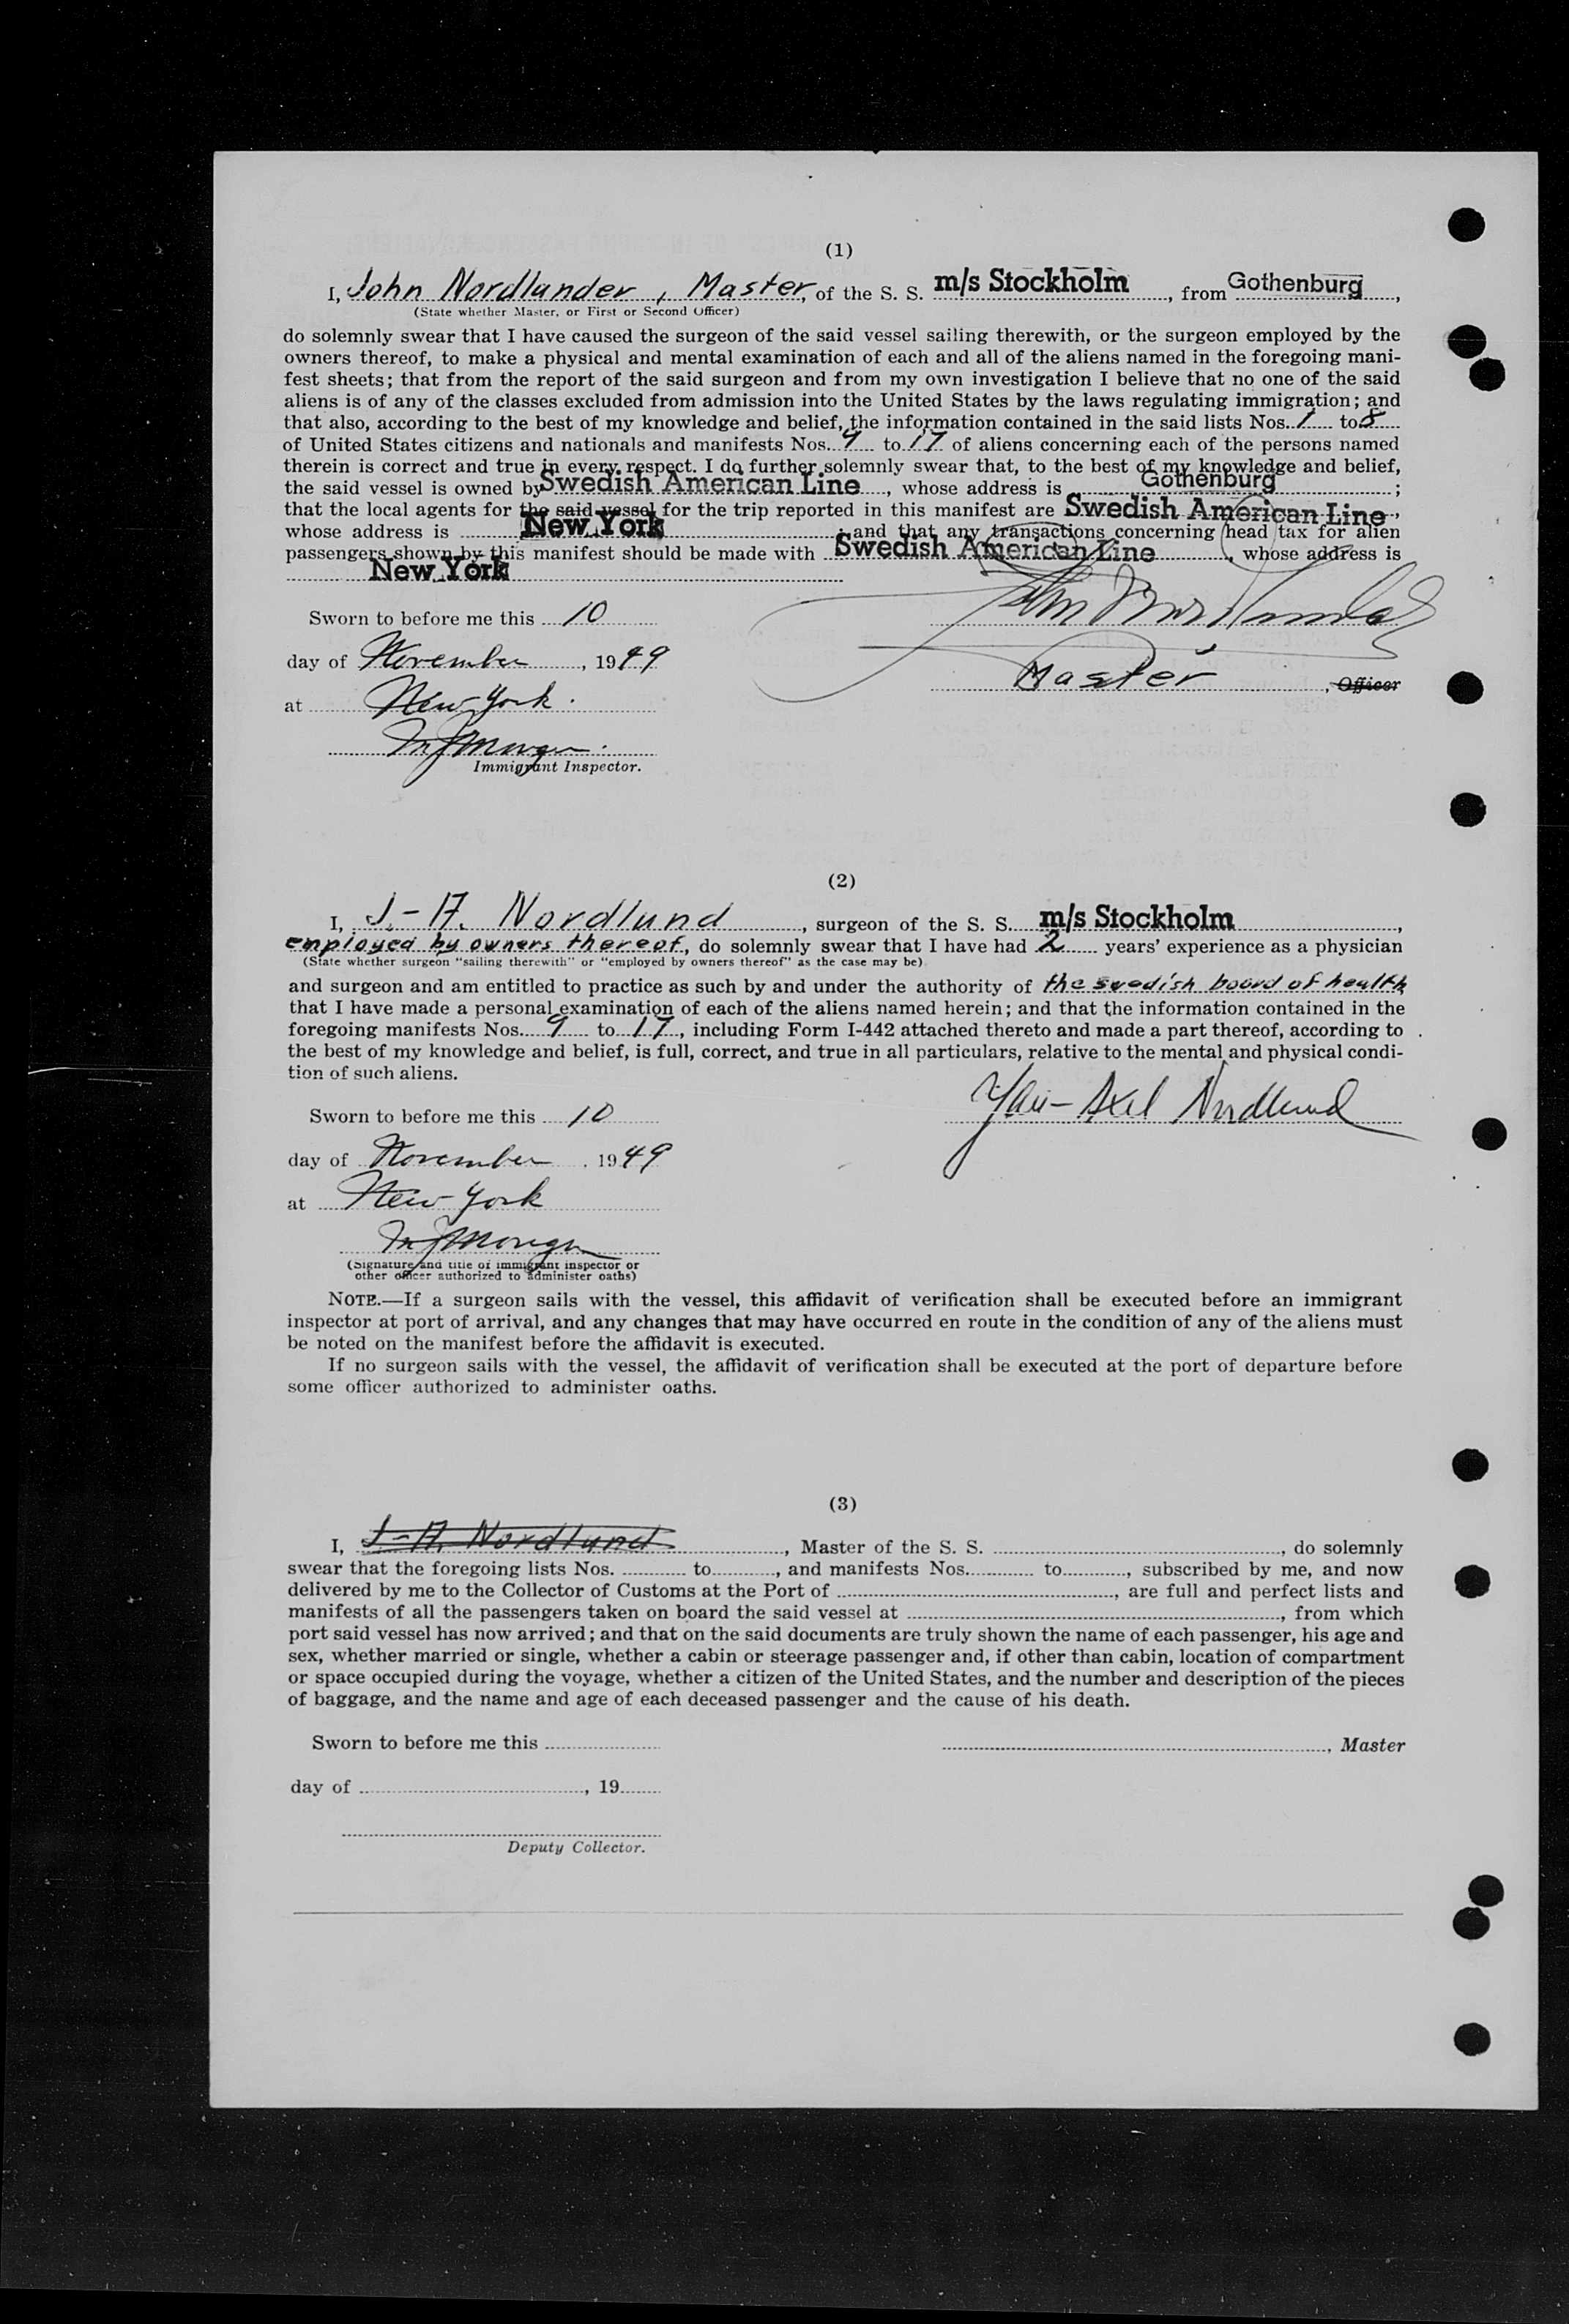 (1)
I, John Nordlander, Master, of the S. S. m/s Stockholm, from Gothenburg,
(State whether Master, or First or Second Officer)
do solemnly swear that I have caused the surgeon of the said vessel sailing therewith, or the surgeon employed by the
owners thereof, to make a physical and mental examination of each and all of the aliens named in the foregoing mani-
fest sheets; that from the report of the said surgeon and from my own investigation I believe that no one of the said
aliens is of any of the classes excluded from admission into the United States by the laws regulating immigration; and
that also, according to the best of my knowledge and belief, the information contained in the said lists Nos. 1 to 8
of United States citizens and nationals and manifests Nos. 9 to 17 of aliens concerning each of the persons named
therein is correct and true in every respect. I do further solemnly swear that, to the best of my knowledge and belief,
the said vessel is owned by Swedish American Line, whose address is Gothenburg;
that the local agents for the said vessel for the trip reported in this manifest are Swedish American Line,
whose address is New York; and that any transactions concerning head tax for alien
passengers shown by this manifest should be made with Swedish American Line, whose address is
New York
Sworn to before me this 10
John Nordlander
day of November, 1949
Master, Officer
at New York.
Immigrant Inspector.
(2)
I, J.-A. Nordlund, surgeon of the S. S. m/s Stockholm,
employed by owners thereof, do solemnly swear that I have had 2 years' experience as a physician
(State whether surgeon "sailing therewith" or "employed by owners thereof" as the case may be)
and surgeon and am entitled to practice as such by and under the authority of the swedish board of health
that I have made a personal examination of each of the aliens named herein; and that the information contained in the
foregoing manifests Nos. 9 to 17, including Form I-442 attached thereto and made a part thereof, according to
the best of my knowledge and belief, is full, correct, and true in all particulars, relative to the mental and physical condi-
tion of such aliens.
Jan-Axel Nordlund
Sworn to before me this 10
day of November, 1949
at New York
(Signature and title of immigrant inspector or
other officer authorized to administer oaths)
NOTE.—If a surgeon sails with the vessel, this affidavit of verification shall be executed before an immigrant
inspector at port of arrival, and any changes that may have occurred en route in the condition of any of the aliens must
be noted on the manifest before the affidavit is executed.
If no surgeon sails with the vessel, the affidavit of verification shall be executed at the port of departure before
some officer authorized to administer oaths.
(3)
I, J-A. Nordlund, Master of the S. S. , do solemnly
swear that the foregoing lists Nos. to , and manifests Nos. to , subscribed by me, and now
delivered by me to the Collector of Customs at the Port of , are full and perfect lists and
manifests of all the passengers taken on board the said vessel at , from which
port said vessel has now arrived; and that on the said documents are truly shown the name of each passenger, his age and
sex, whether married or single, whether a cabin or steerage passenger and, if other than cabin, location of compartment
or space occupied during the voyage, whether a citizen of the United States, and the number and description of the pieces
of baggage, and the name and age of each deceased passenger and the cause of his death.
Sworn to before me this
, Master
day of , 19
Deputy Collector.